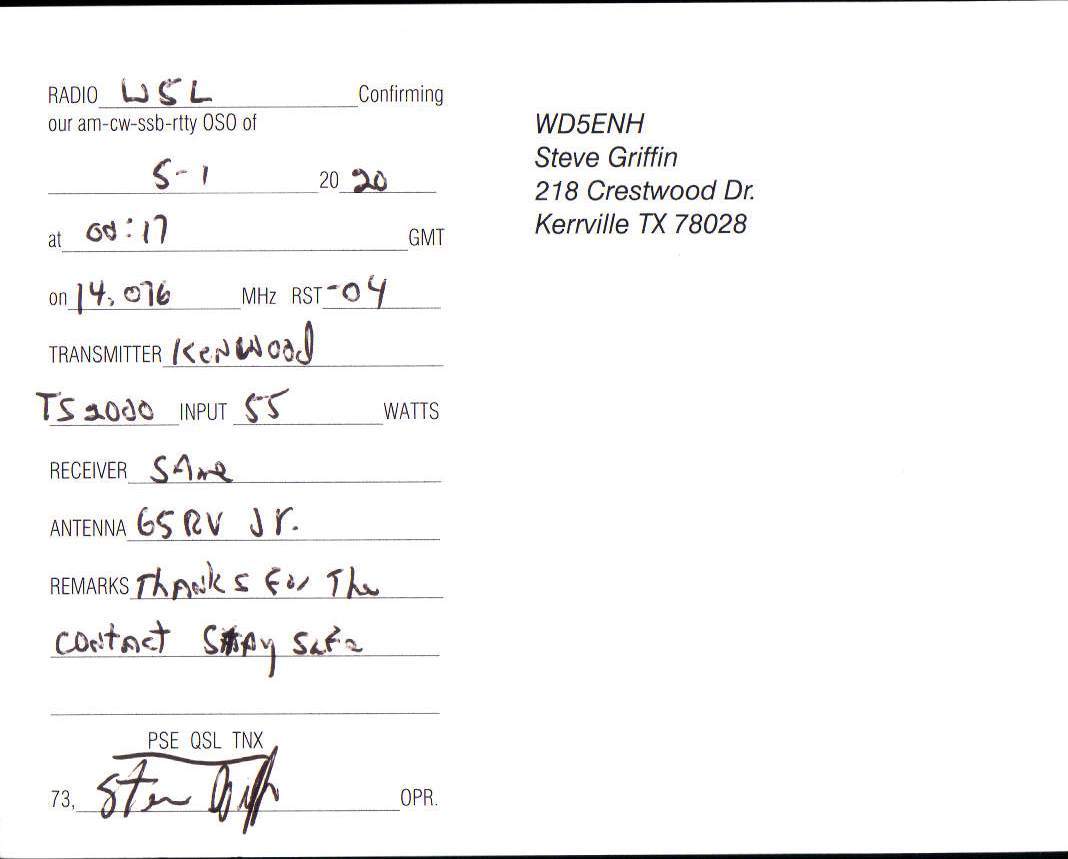 RADIO W5L Confirming
our am-cw-ssb-rtty OSO of
5-1 20 20
at 00:17 GMT
on 14,076 MHz RST -04
TRANSMITTER KENWOOD
TS 2000 INPUT 55 WATTS
RECEIVER SAme
ANTENNA G5RV Jr.
REMARKS Thanks For The
contact Stay Safe
PSE QSL TNX
73, Steve Griff OPR.
WD5ENH
Steve Griffin
218 Crestwood Dr.
Kerrville TX 78028